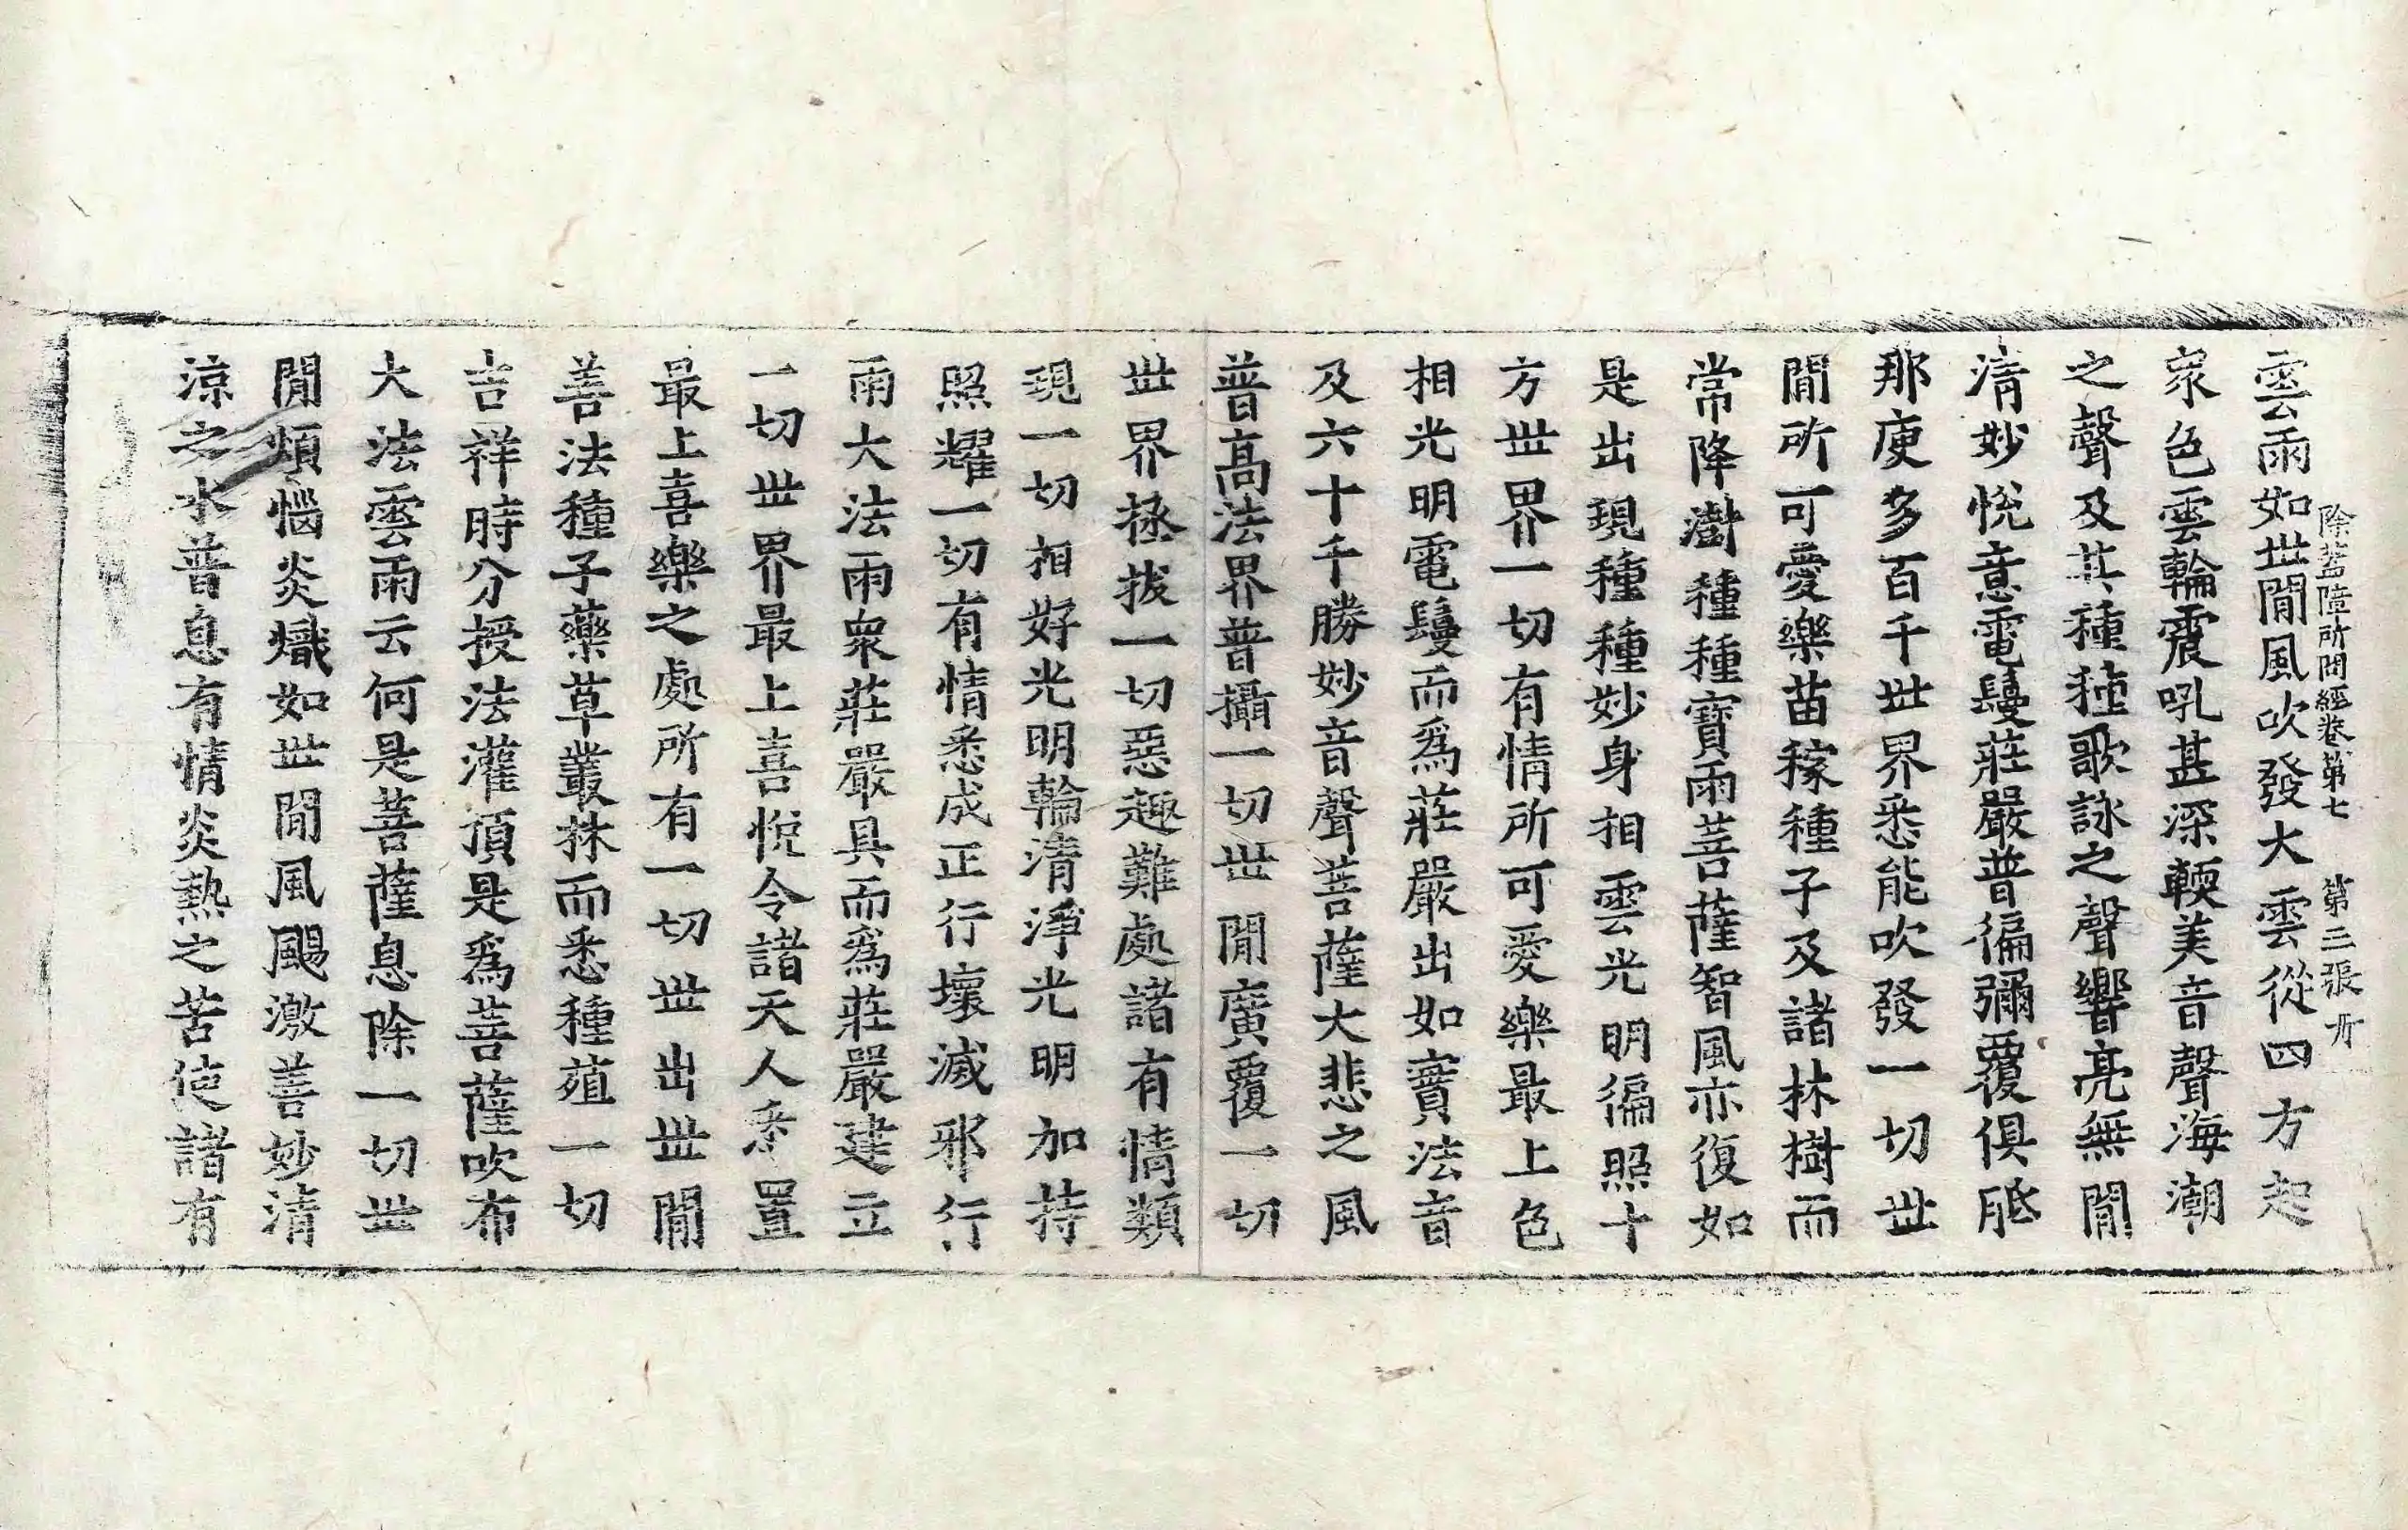 除蓋障所問經卷第七　第三張　所
雲雨如世間風吹發大雲從四方起
衆色雲輪震吼甚深輭美音聲海潮
之聲及其種種歌詠之聲響亮無間
清妙悅意電鬘莊嚴普徧彌覆俱胝
那庾多百千世界悉能吹發一切世
間所可愛樂苗稼種子及諸林樹而
常降澍種種寶雨菩薩智風亦復如
是出現種種妙身相雲光明徧照十
方世界一切有情所可愛樂最上色
相光明電鬘而爲莊嚴出如實法音
及六十千勝妙音聲菩薩大悲之風
普高法界普攝一切世間廣覆一切
世界拯拔一切惡趣難處諸有情類
現一切相好光明輪清淨光明加持
照耀一切有情悉成正行壞滅邪行
雨大法雨衆莊嚴具而爲莊嚴建立
一切世界最上喜悅令諸天人悉置
最上喜樂之處所有一切世出世間
善法種子藥草叢林而悉種殖一切
吉祥時分授法灌頂是爲菩薩吹布
大法雲雨云何是菩薩息除一切世
間煩惱炎熾如世間風颺激善妙清
涼之水普息有情炎熱之苦使諸有